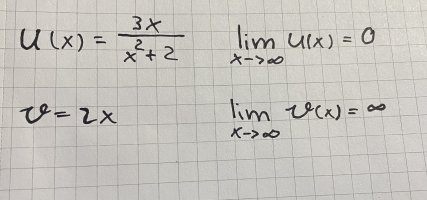 U(x) = 3x / (x² + 2)    lim x->∞ U(x) = 0
v = 2x    lim x->∞ v(x) = ∞